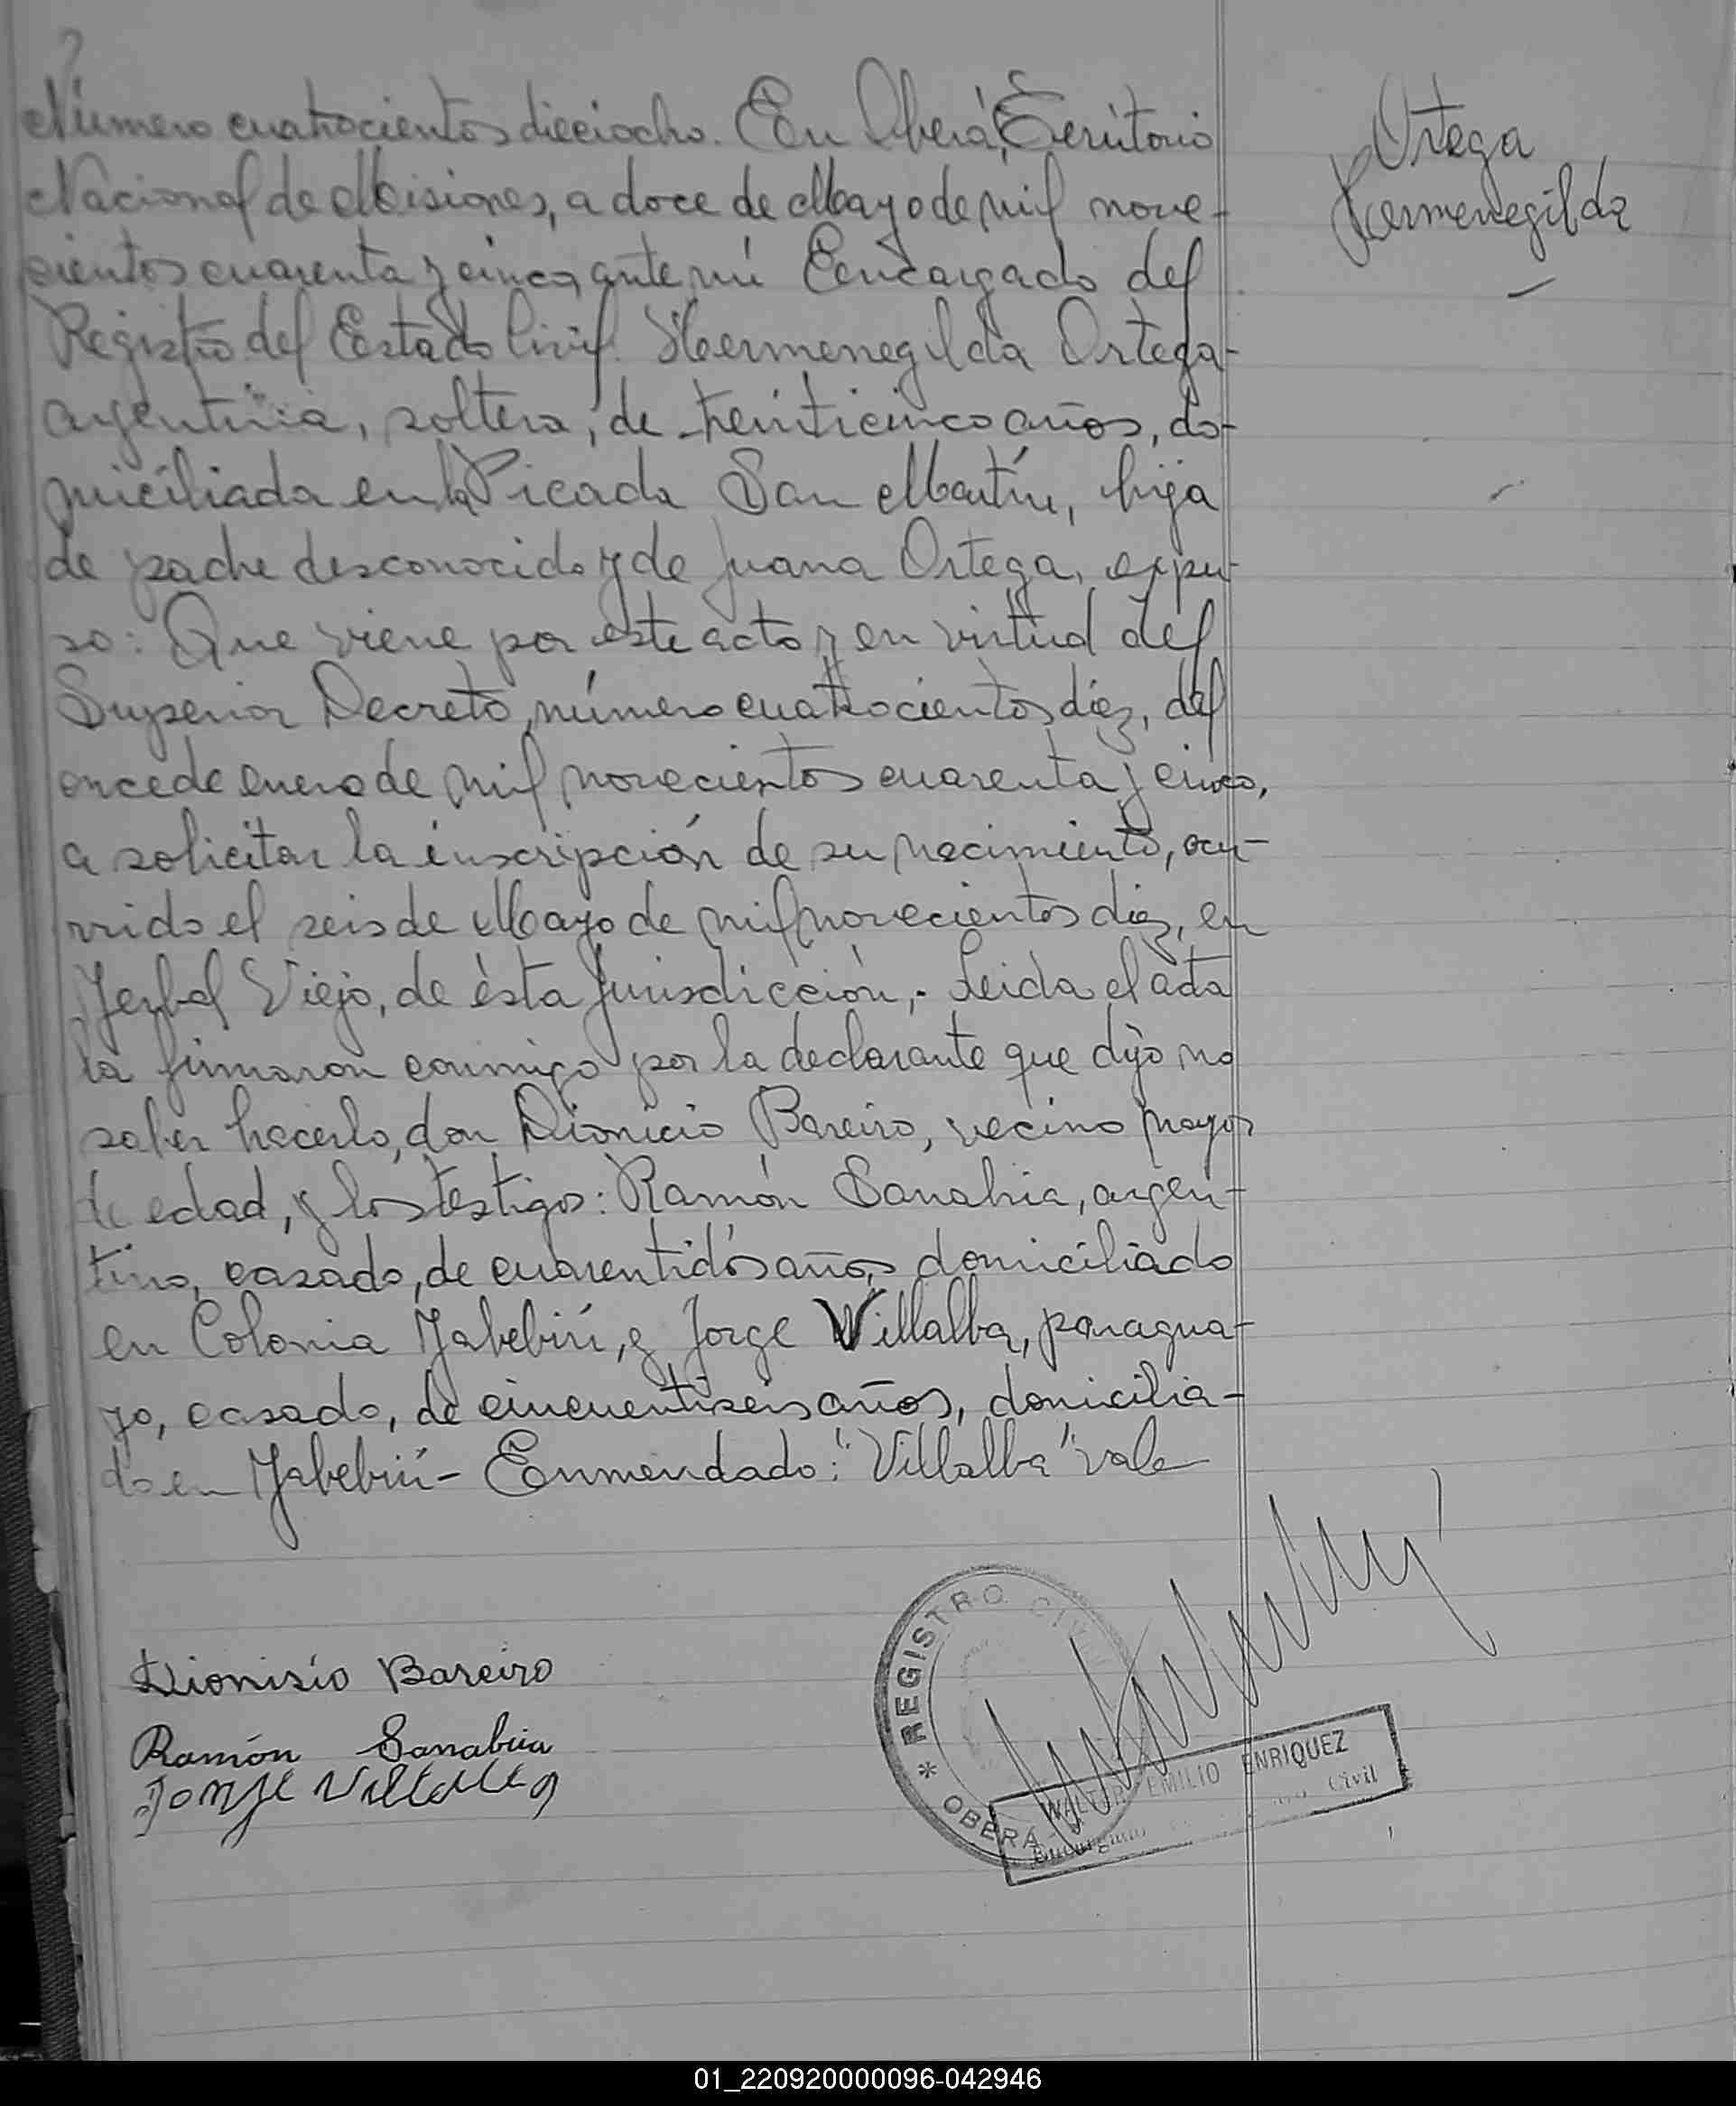 Número cuatrocientos dieciocho. En Oberá, Territorio
Nacional de Misiones, a doce de Mayo de mil nove-
cientos cuarenta y cinco, ante mí Encargado del
Registro del Estado Civil. Hermenegilda Ortega-
argentina, soltera, de treinticinco años, do-
miciliada en la Picada San Martín, hija
de padre desconocido y de Juana Ortega, expu-
so: Que viene por este acto y en virtud del
Superior Decreto, número cuatrocientos diez, del
once de enero de mil novecientos cuarenta y cinco,
a solicitar la inscripción de su nacimiento, ocu-
rrido el seis de Mayo de mil novecientos diez, en
Yerbal Viejo, de ésta Jurisdicción,- Leida el acta
la firmaron conmigo por la declarante que dijo no
saber hacerlo, don Dionicio Bareiro, vecino mayor
de edad, y los testigos: Ramón Sanabria, argen-
tino, casado, de cuarentidós años, domiciliado
en Colonia Yabebirí, y Jorge Villalba, paragua-
yo, casado, de cincuentiseis años, domicilia-
do en Yabebirí- Enmendado: "Villalba" vale
Ortega
Hermenegilda
Dionisio Bareiro
Ramón Sanabria
Jorge Villalba
* REGISTRO CIVIL
OBERA
WALTER EMILIO ENRIQUEZ
Encargado Civil
01_220920000096-042946